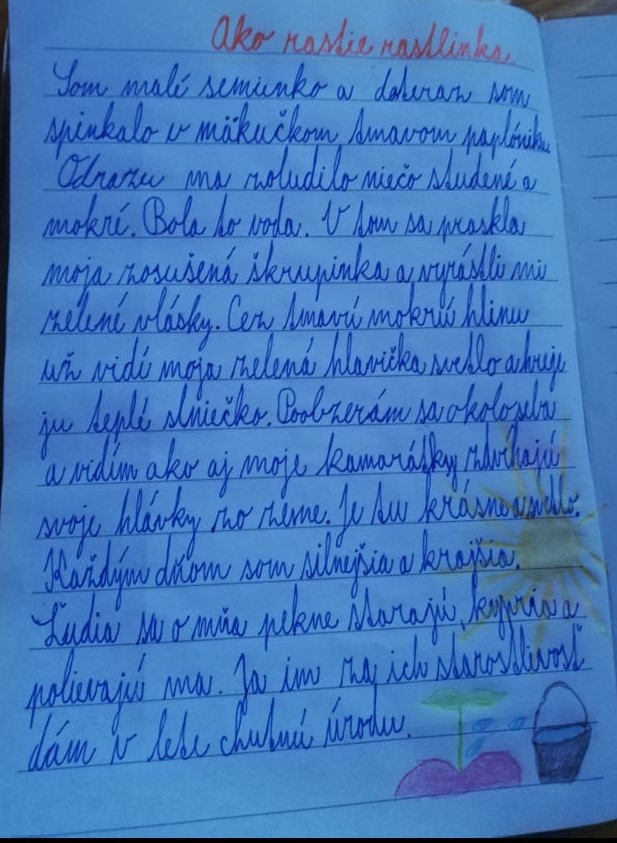 Ako rastie rastlinka
Som malé semienko a doteraz som
spinkalo v mäkučkom tmavom paplóniku
Odrazu ma zobudilo niečo studené a
mokré. Bola to voda. V tom sa praskla
moja zosušená škrupinka a vyrástli mi
zelené vlásky. Cez tmavú mokrú hlinu
už vidí moja zelená hlavička svetlo a hreje
ju teplé slniečko. Poobzerám sa okolo seba
a vidím ako aj moje kamarátky zdvíhajú
svoje hlávky zo zeme. Je tu krásne a svetlo.
Každým dňom som silnejšia a krajšia.
Ľudia sa o mňa pekne starajú, kypria a
polievajú ma. Ja im za ich starostlivosť
dám v lete chutnú úrodu.